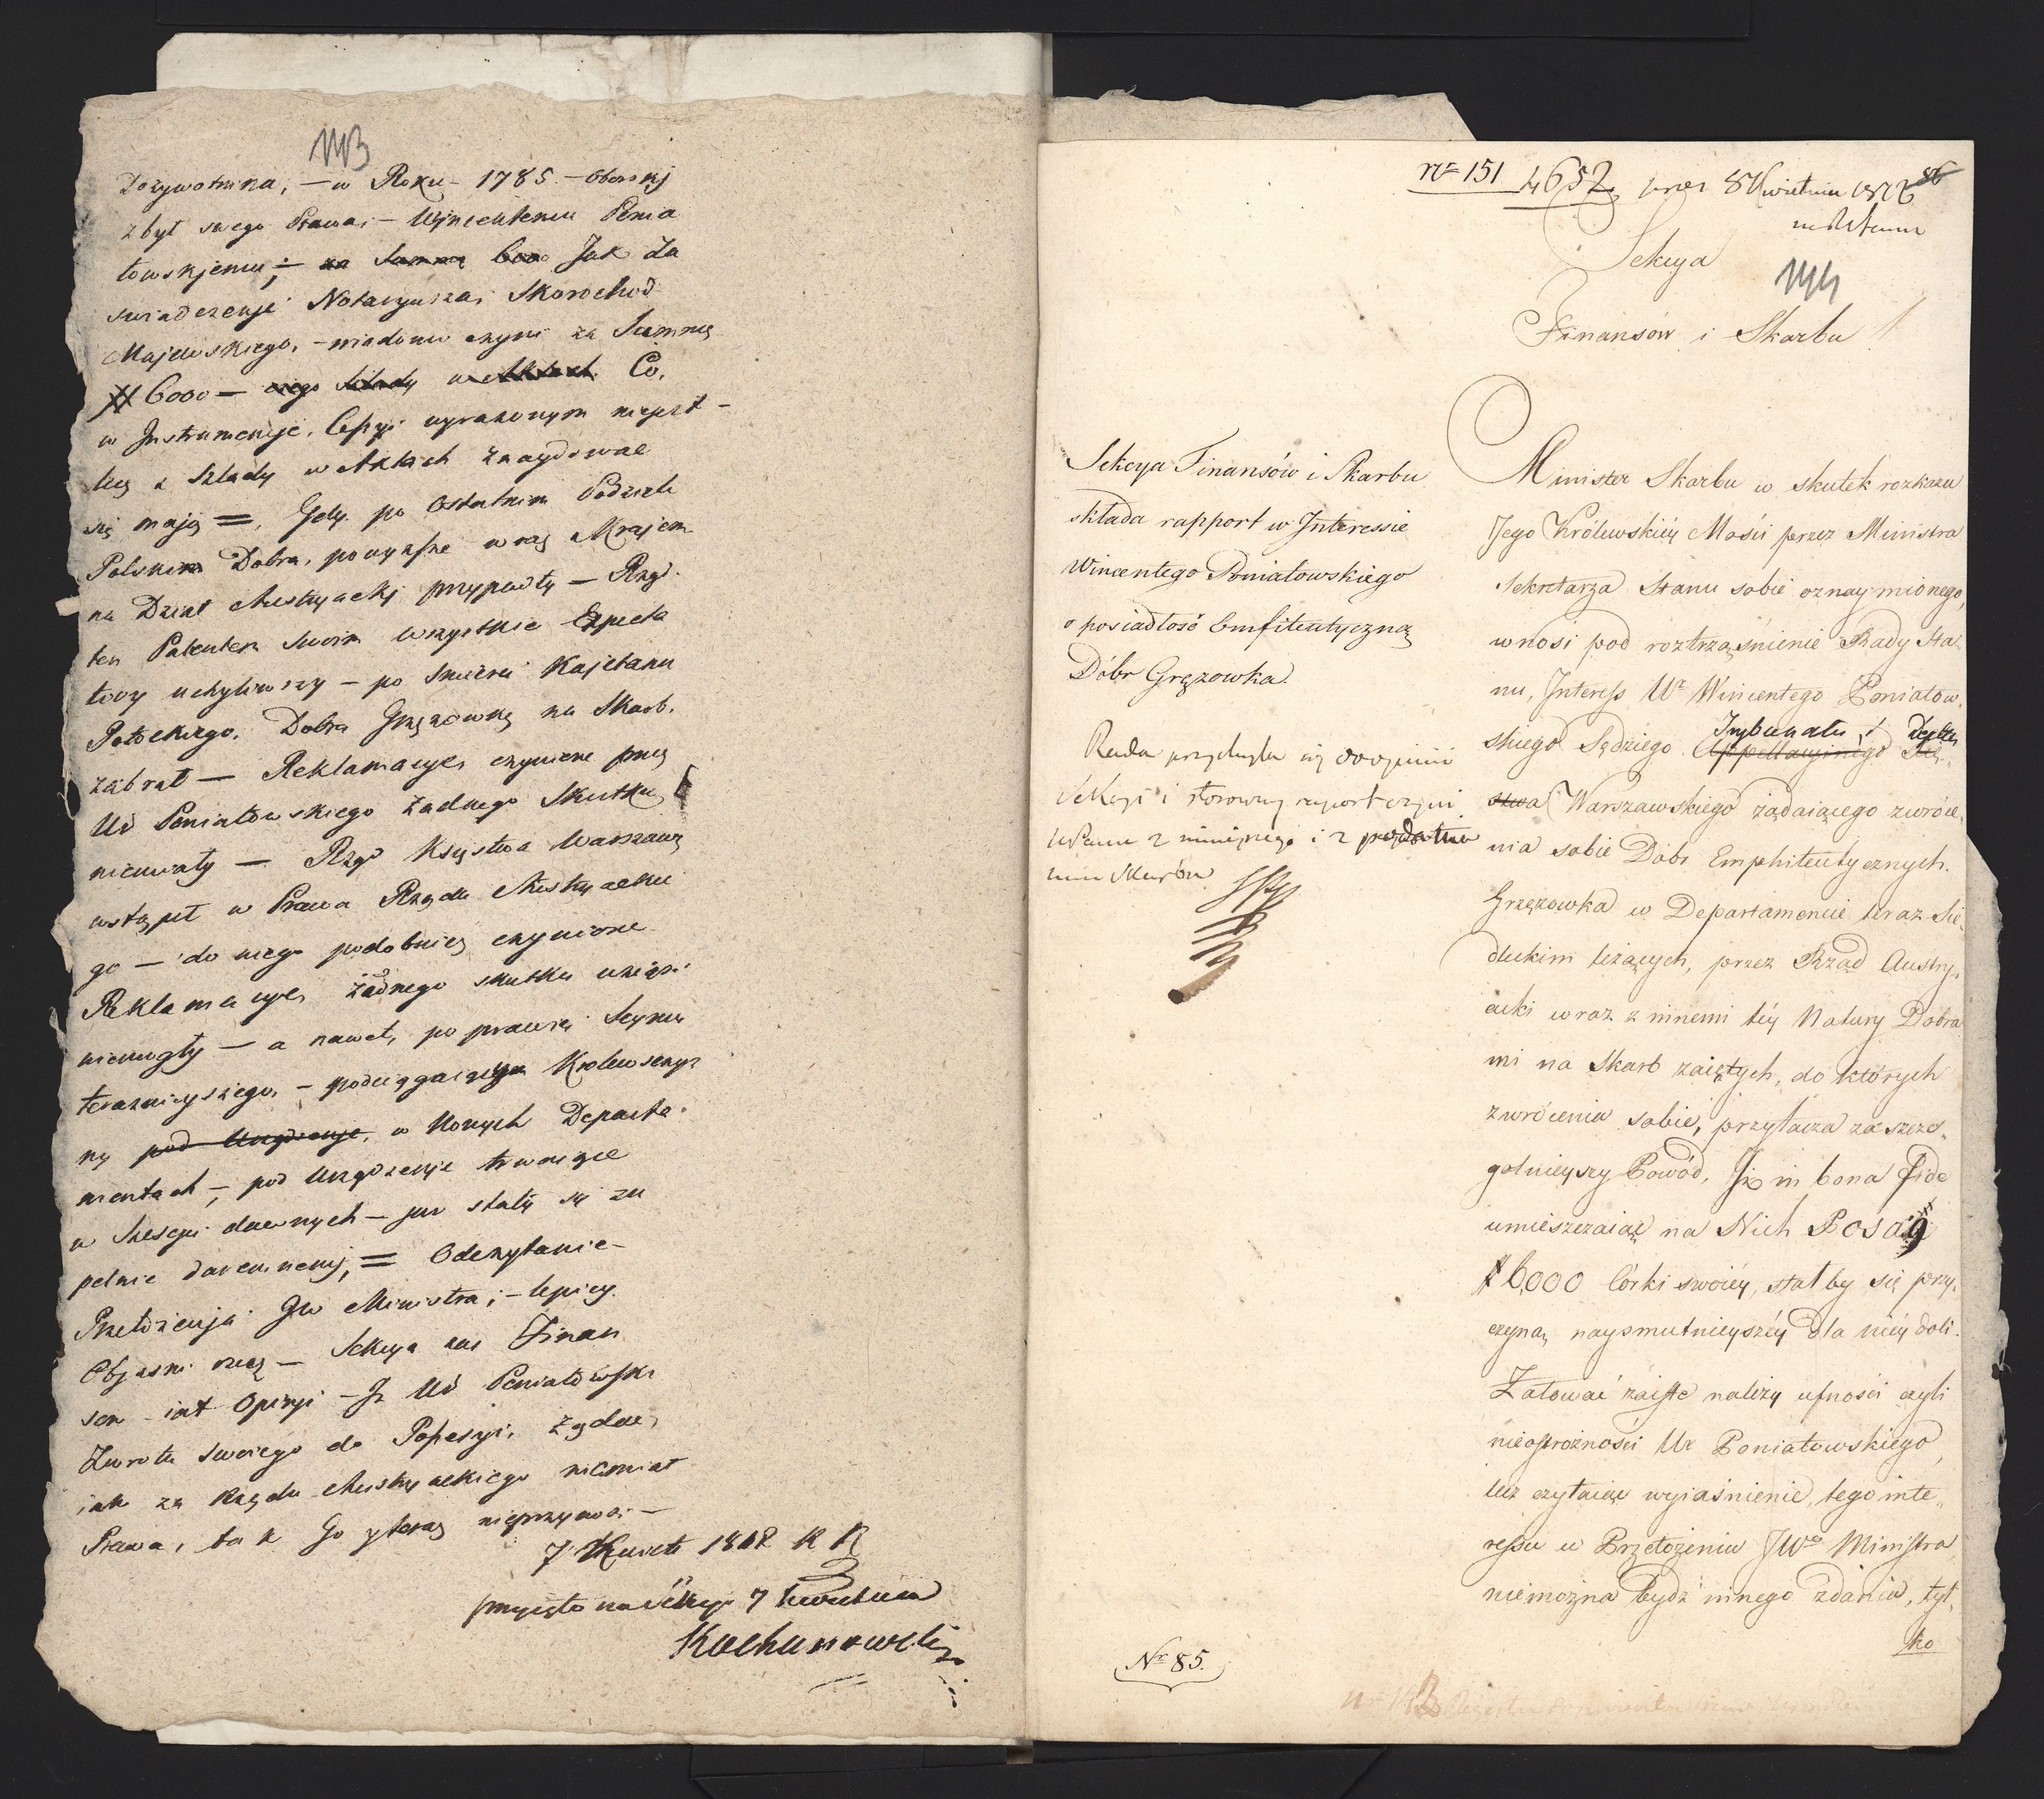 143
Dożywotnika, — w Roku — 1785 —
zbył swego Prawa, — Wincentemu Ponia
towskjemu; — za Summę 600 Jak Za
swiadczenje Notaryusza, Skorochod
Majewskiego, — wiadomo czyni za Summę
# 6000 — iego Szlady w Aktach Co,
w Instrumencje, Cessyi wyrażonym nieiest —
lecz z Szlady w Aktach znaydować
się mają =, Gdy po Ostatnim Podziale
Polskim Dobra, powyższe wraz z Krajem
na Dział Austryacki przypadły — Rząd
ten Patentem Swoim wszystkie Expecta
tywy uchyliwszy — po Smierci Kajetana
Potockiego, Dobra Grężowkę na Skarb
zabrał — Reklamacye, czynione przez
Ur Poniatowskiego żadnego Skutku
niemiały — Rząd Księstwa Warszaws
wstąpił w Prawa Rządu Austryackie
go — do niego podobnież czynione
Reklamacye, żadnego skutku wziąść
niemogły — a nawet, po prawie Seymu
teraznieyszego, — podciągaiącym Krolewszczyz
ny pod Urządzenje, w Nowych Departa
mentach —, pod Urządzenje trwaiące
w Szesciu dawnych — już stały się zu
pełnie daremnemi, = Odczytanie
Przełożenja JW Ministra; — lepiey
Objasni rzecz — Sekcya zaś Finan
sow — iest Opinji — Iż Ur Poniatowski
Zwrotu swoiego do Possesyi, żądać,
iak za Rządu Austryackiego niemiał
Prawa, tak Go y teraz
7 Kwiet 1812 R
przyięto na Sekcyi 7 Kwietnia
Kochanowski
Nro 151 4652 prez 8 Kwietnia 1812 86
Sekcya
144
Finansów i Skarbu
Sekcya Finansów i Skarbu
składa rapport w Interessie
Wincentego Poniatowskiego
o posiadłość Emfiteutyczną
Dóbr Grężowka.
Rada przychyla się do opinii
Sekcyi i stosowny raport czyni
Minis Skarbu
Nr 85.
Minister Skarbu w skutek rozkazu
Jego Królewskiéy Mości przez Ministra
Sekretarza Stanu sobie oznaymionego,
wnosi pod roztrząśnienie Rady Sta-
nu, Interess Ur Wincentego Poniatow-
skiego Sędziego Appellacyinego Xię- Trybunału,
stwa Warszawskiego żądaiącego zwróce-
nia sobie Dóbr Emphiteutycznych
Grzężowka w Departamencie teraz Sie-
dleckim leżących, przez Rząd Austry-
acki wraz z innemi téy Natury Dobra
mi na Skarb zaiętych, do których
zwrócenia sobie, przytacza za szcze-
gólnieyszy Powód, Iż in bona Fide
umieszczaiąc na Nich Posag
# 6,000 Córki swoiéy, stał by się przy-
czyną naysmutnieyszéy dla niéy doli.
Żałować zaiste należy ufności czyli
nieostrożności Ur Poniatowskiego,
lecz czytaiąc wyiaśnienie, tego inte-
ressu w Przełożeniu JWo Ministra
niemożna bydź innego zdania, tyl-
ko